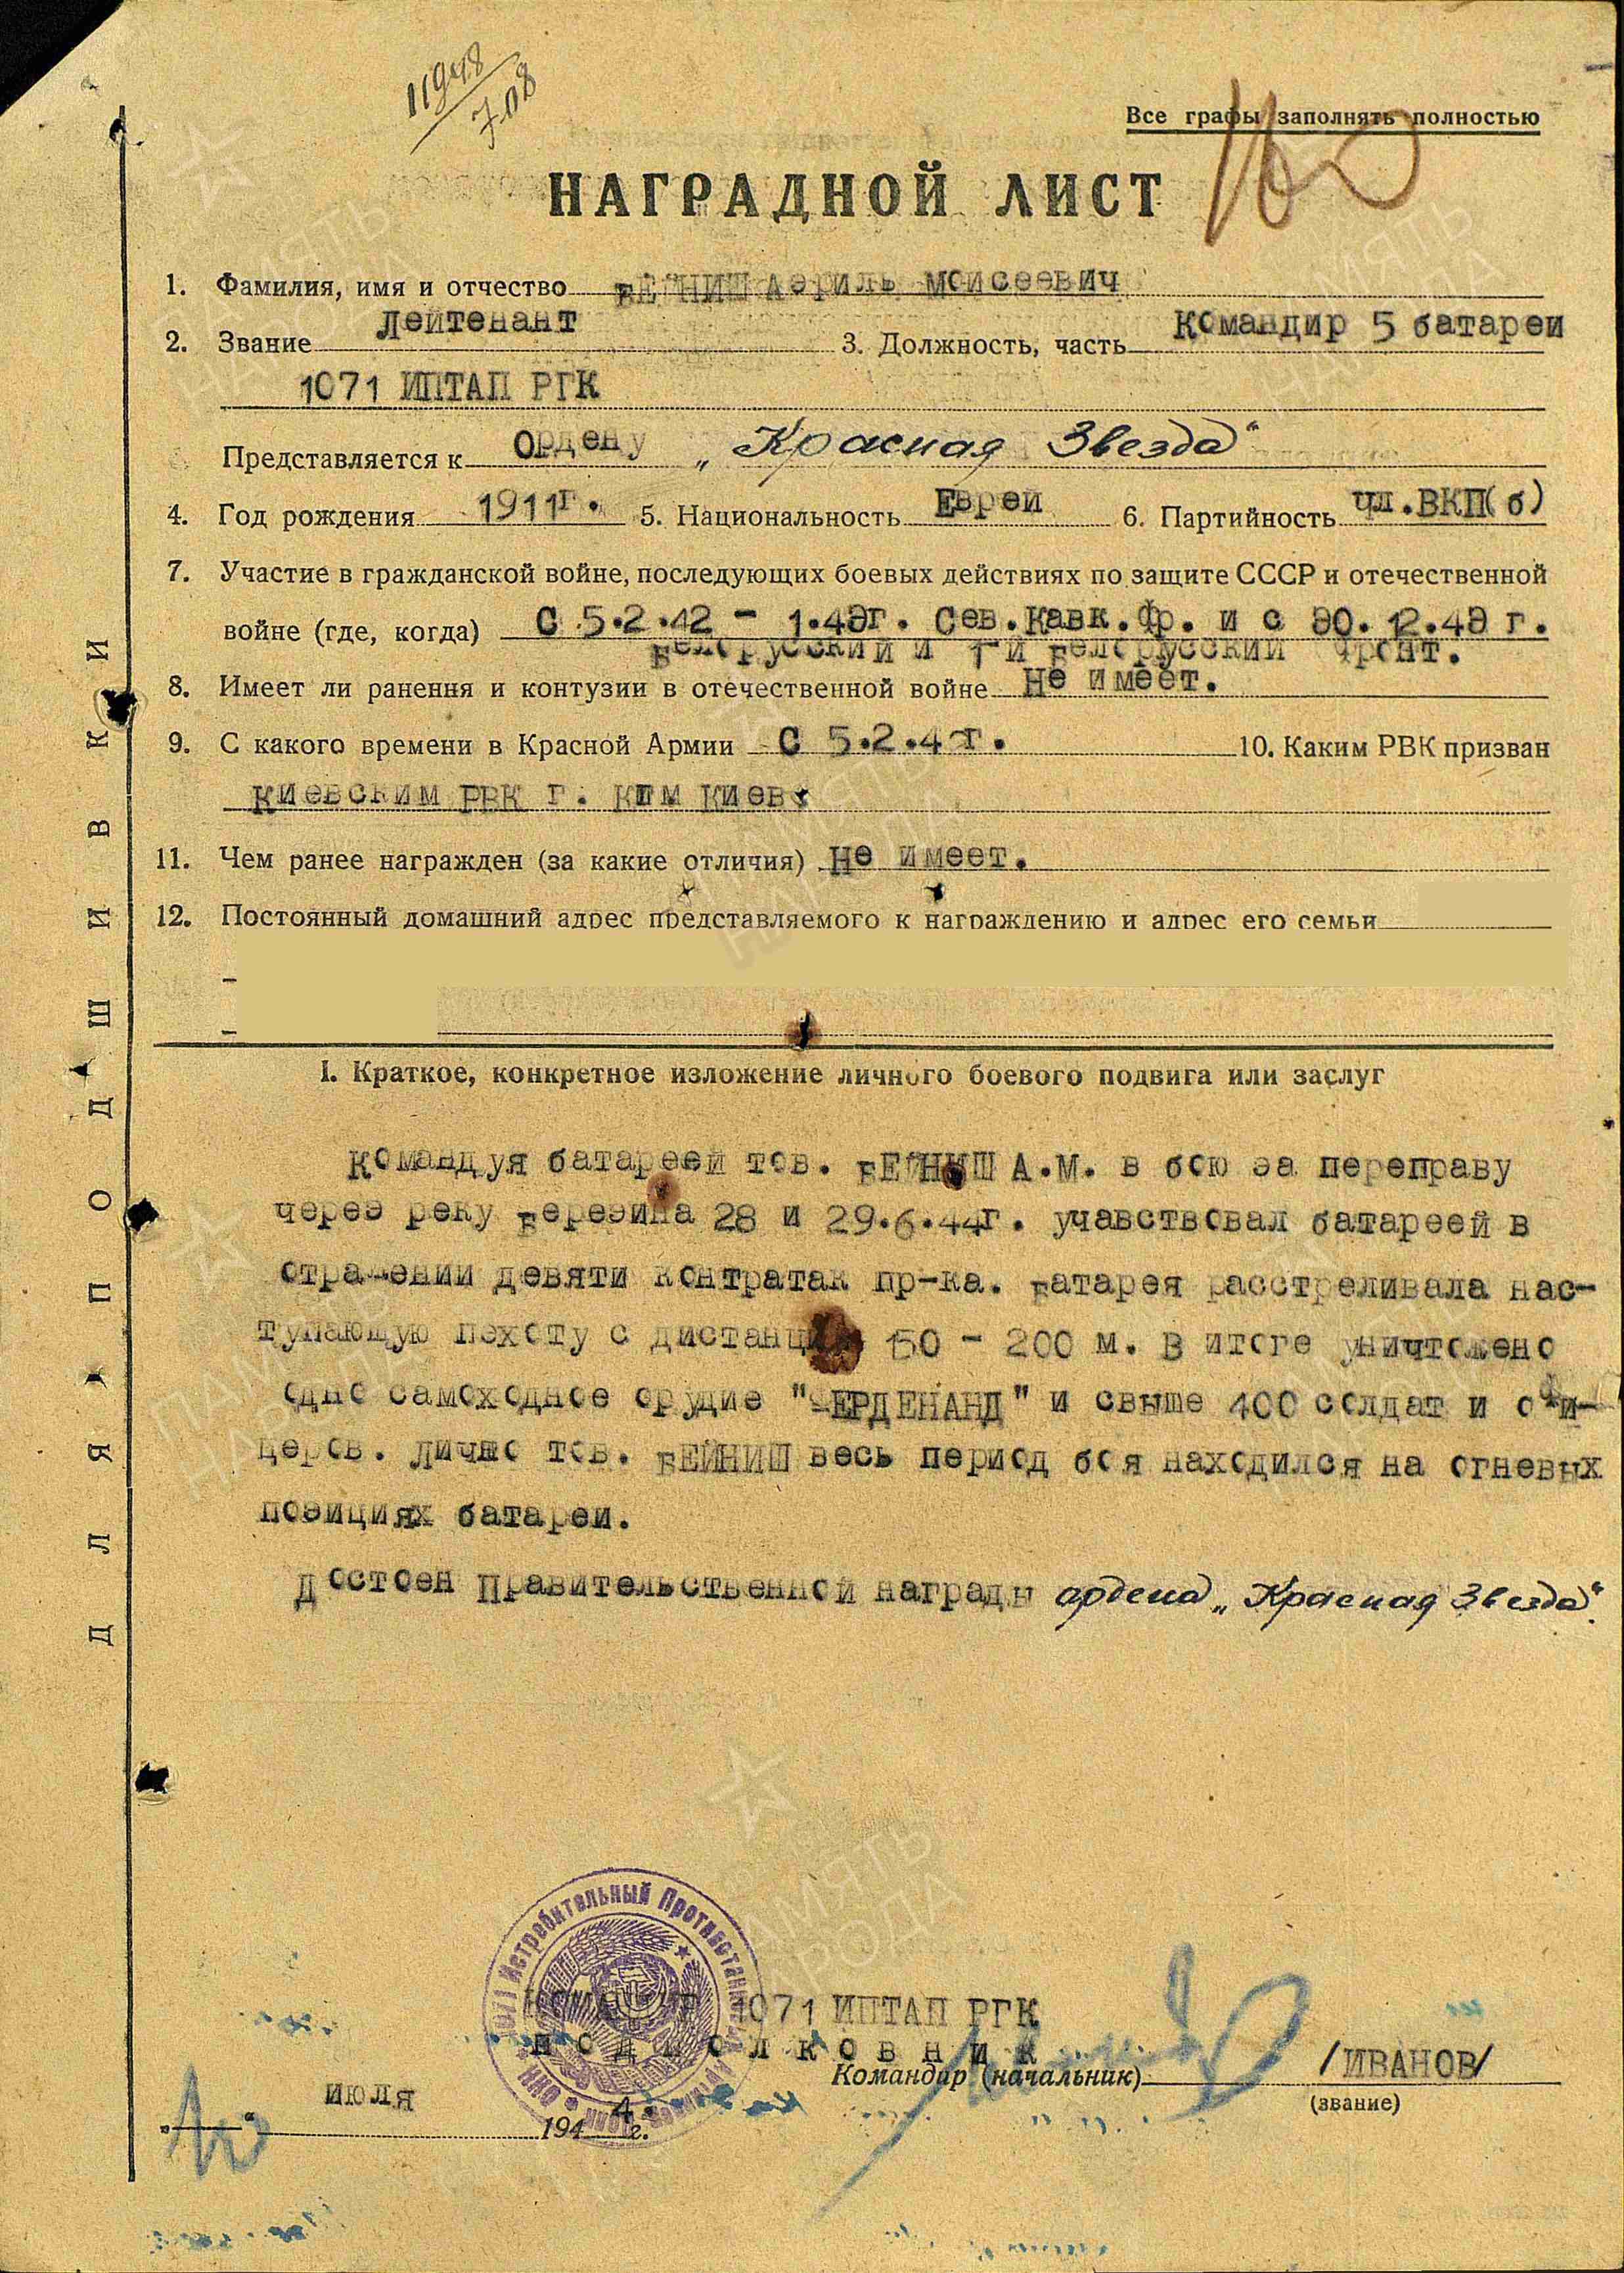 11948
708
Все графы заполнять полностью
НАГРАДНОЙ ЛИСТ
1. Фамилия, имя и отчество БЕЙНИШ Аериль Моисеевич
2. Звание Лейтенант 3. Должность, часть Командир 5 батареи
1071 ИПТАП РГК
Представляется к Ордену „Красная Звезда“
4. Год рождения 1911г. 5. Национальность Еврей 6. Партийность чл.ВКП(б)
7. Участие в гражданской войне, последующих боевых действиях по защите СССР и отечественной
войне (где, когда) С 5.2.42 - 1.43г. Сев.Кавк.Фр. и с 30.12.43 г.
Белорусский и 1-й Белорусский фронт.
8. Имеет ли ранення и контузии в отечественной войне Не имеет.
9. С какого времени в Красной Армии С 5.2.4 г. 10. Каким РВК призван
Киевским РВК г. Киев
11. Чем ранее награжден (за какие отличия) Не имеет.
12. Постоянный домашний адрес представляемого к награждению и адрес его семьи
I. Краткое, конкретное изложение личного боевого подвига или заслуг
Командуя батареей тов. БЕЙНИШ А.М. в бою за переправу
через реку Березина 28 и 29.6.44г. учавствовал батареей в
отражении девяти контратак пр-ка. Батарея расстреливала нас-
тупающую пехоту с дистанции 150 - 200 м. В итоге уничтожено
одно самоходное орудие "ФЕРДЕНАНД" и свыше 400 солдат и офи-
церов. Лично тов. БЕЙНИШ весь период боя находился на огневых
позициях батареи.
Достоен Правительственной награды ордена „Красная Звезда“.
Командир 1071 ИПТАП РГК
подполковник
Командир (начальник) /ИВАНОВ/
(звание)
„10“ июля 1944 г.
1071 Истребительный Противотанковый
ДЛЯ ПОДШИВКИ
ПАМЯТЬ НАРОДА